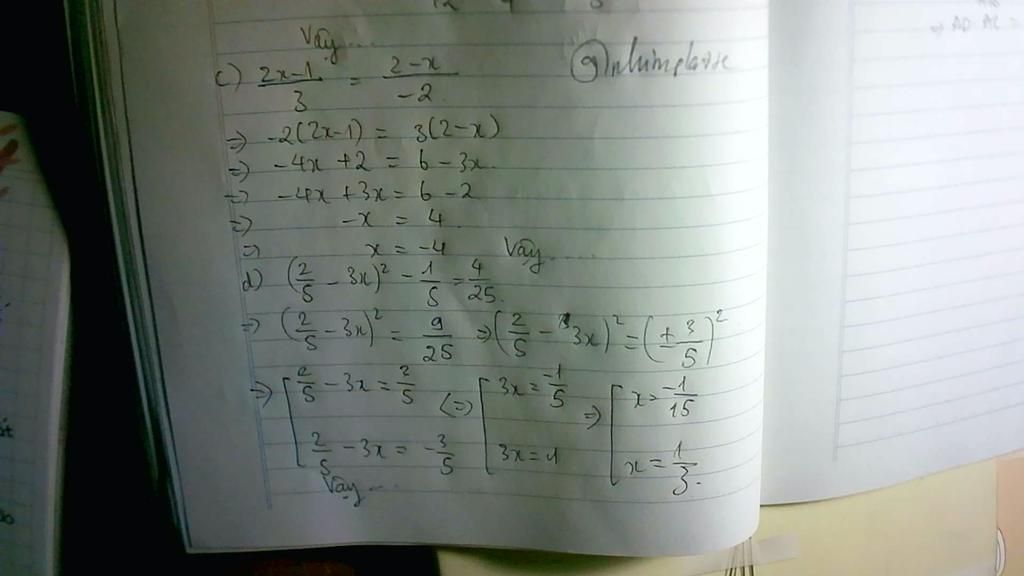 Vậy....
c) \frac{2x-1}{3} = \frac{2-x}{-2}
⇒ -2(2x-1) = 3(2-x)
⇒ -4x + 2 = 6 - 3x
⇒ -4x + 3x = 6 - 2
⇒ -x = 4
⇒ x = -4 Vậy.....
d) (\frac{2}{5} - 3x)^2 - \frac{1}{5} = \frac{4}{25}.
⇒ (\frac{2}{5} - 3x)^2 = \frac{9}{25} ⇒ (\frac{2}{5} - 3x)^2 = (\frac{±3}{5})^2
⇒ [ \frac{2}{5} - 3x = \frac{2}{5} <=> [ 3x = \frac{-1}{5} ⇒ [ x = \frac{-1}{15}
\frac{2}{5} - 3x = -\frac{3}{5} 3x = 1 x = \frac{1}{3}.
Vậy...